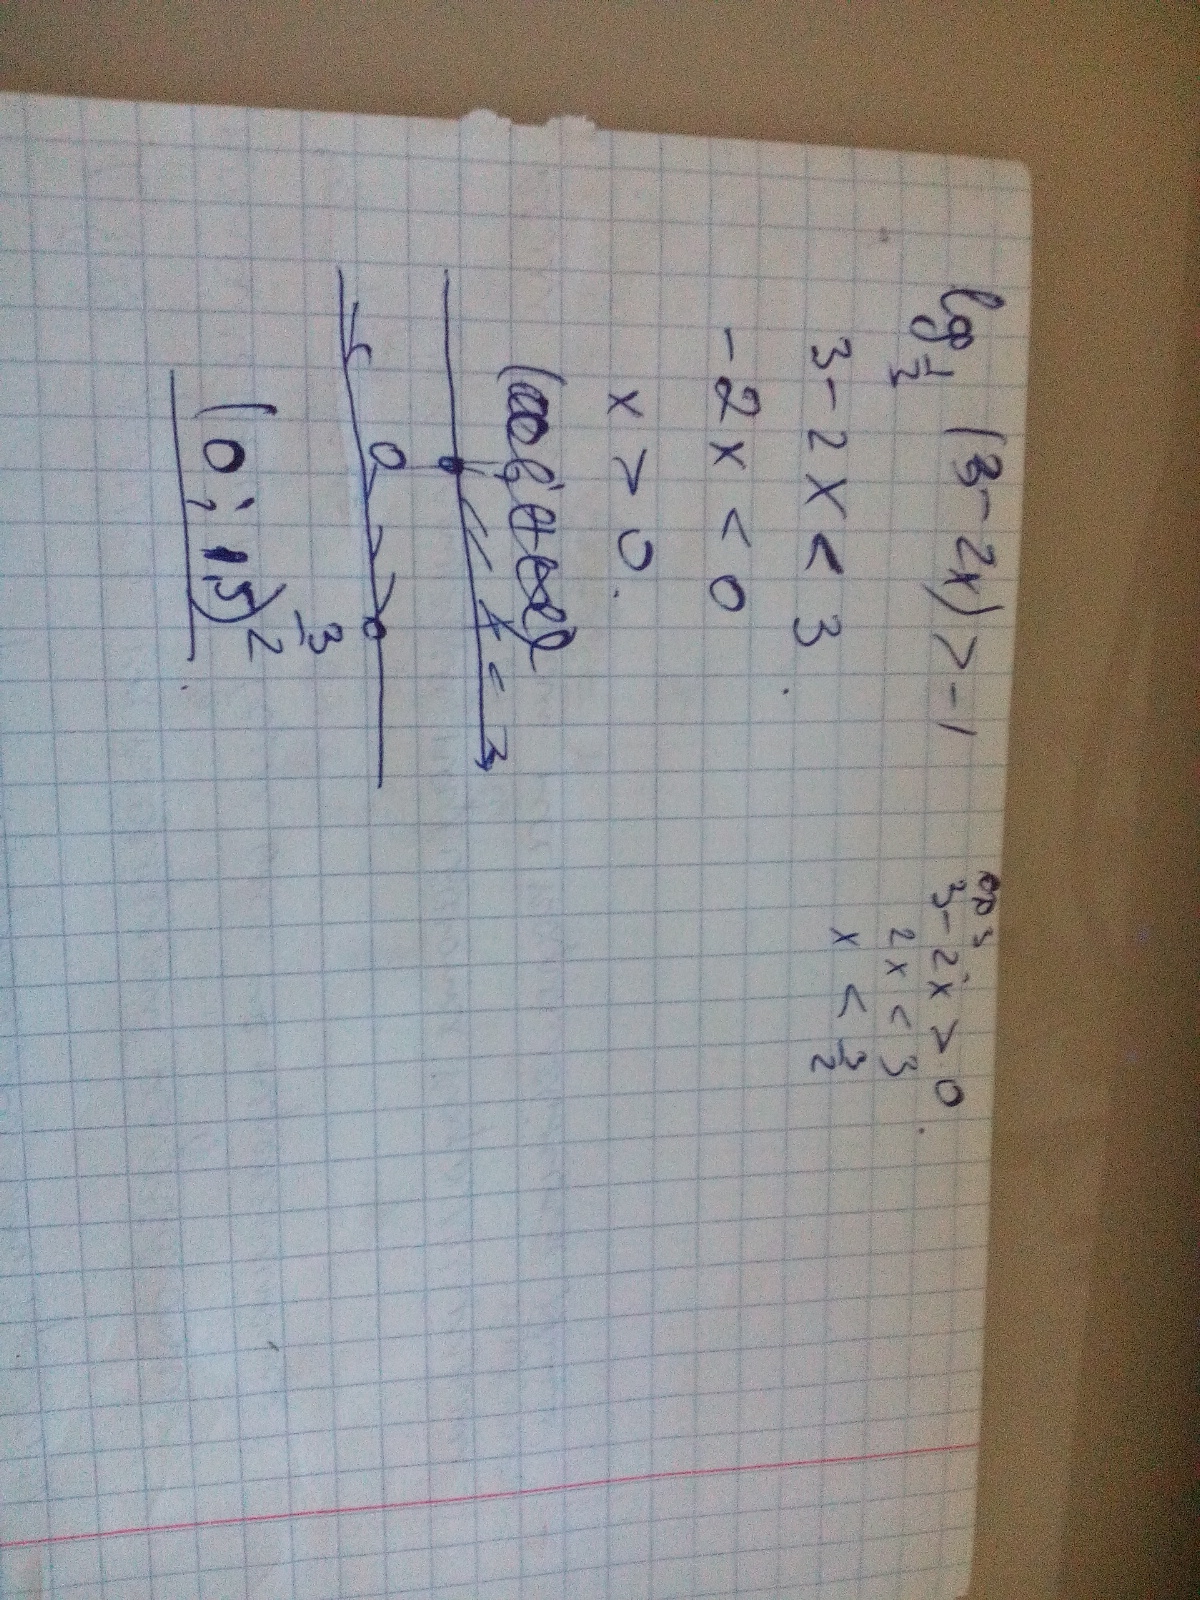 log 1/2 (3-2x) > -1
3-2x < 3
-2x < 0
x > 0.
(0; 1,5)
3
2
3-2x > 0
2x < 3
x < 3/2